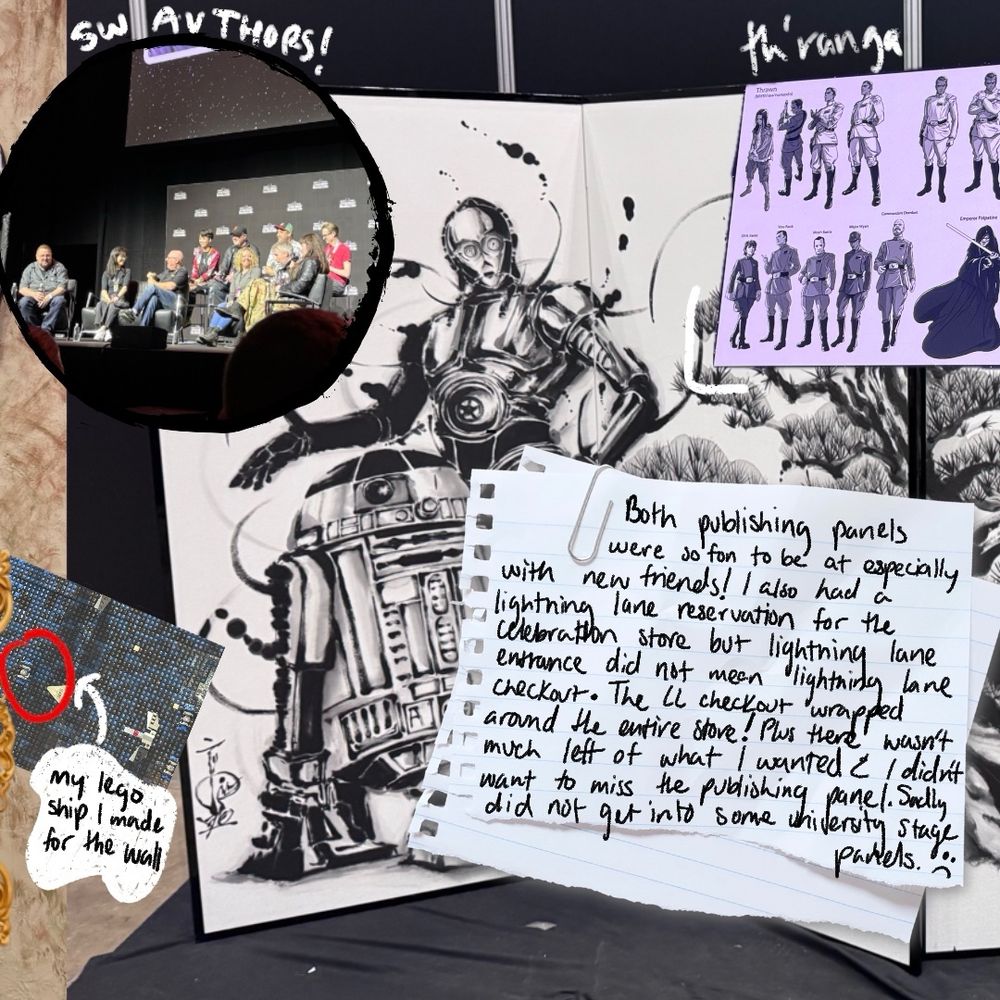 SW AUTHORS!
th'ranga
Thrawn
Commodore Dierdori
Emperor Palpatine
Both publishing panels
were so fun to be at especially
with new friends! I also had a
lightning lane reservation for the
Celebration store but lightning lane
entrance did not mean lightning lane
checkout. The LL checkout wrapped
around the entire store! Plus there wasn't
much left of what I wanted & I didn't
want to miss the publishing panel. Sadly
did not get into some university stage
panels. :(
my lego
ship I made
for the wall